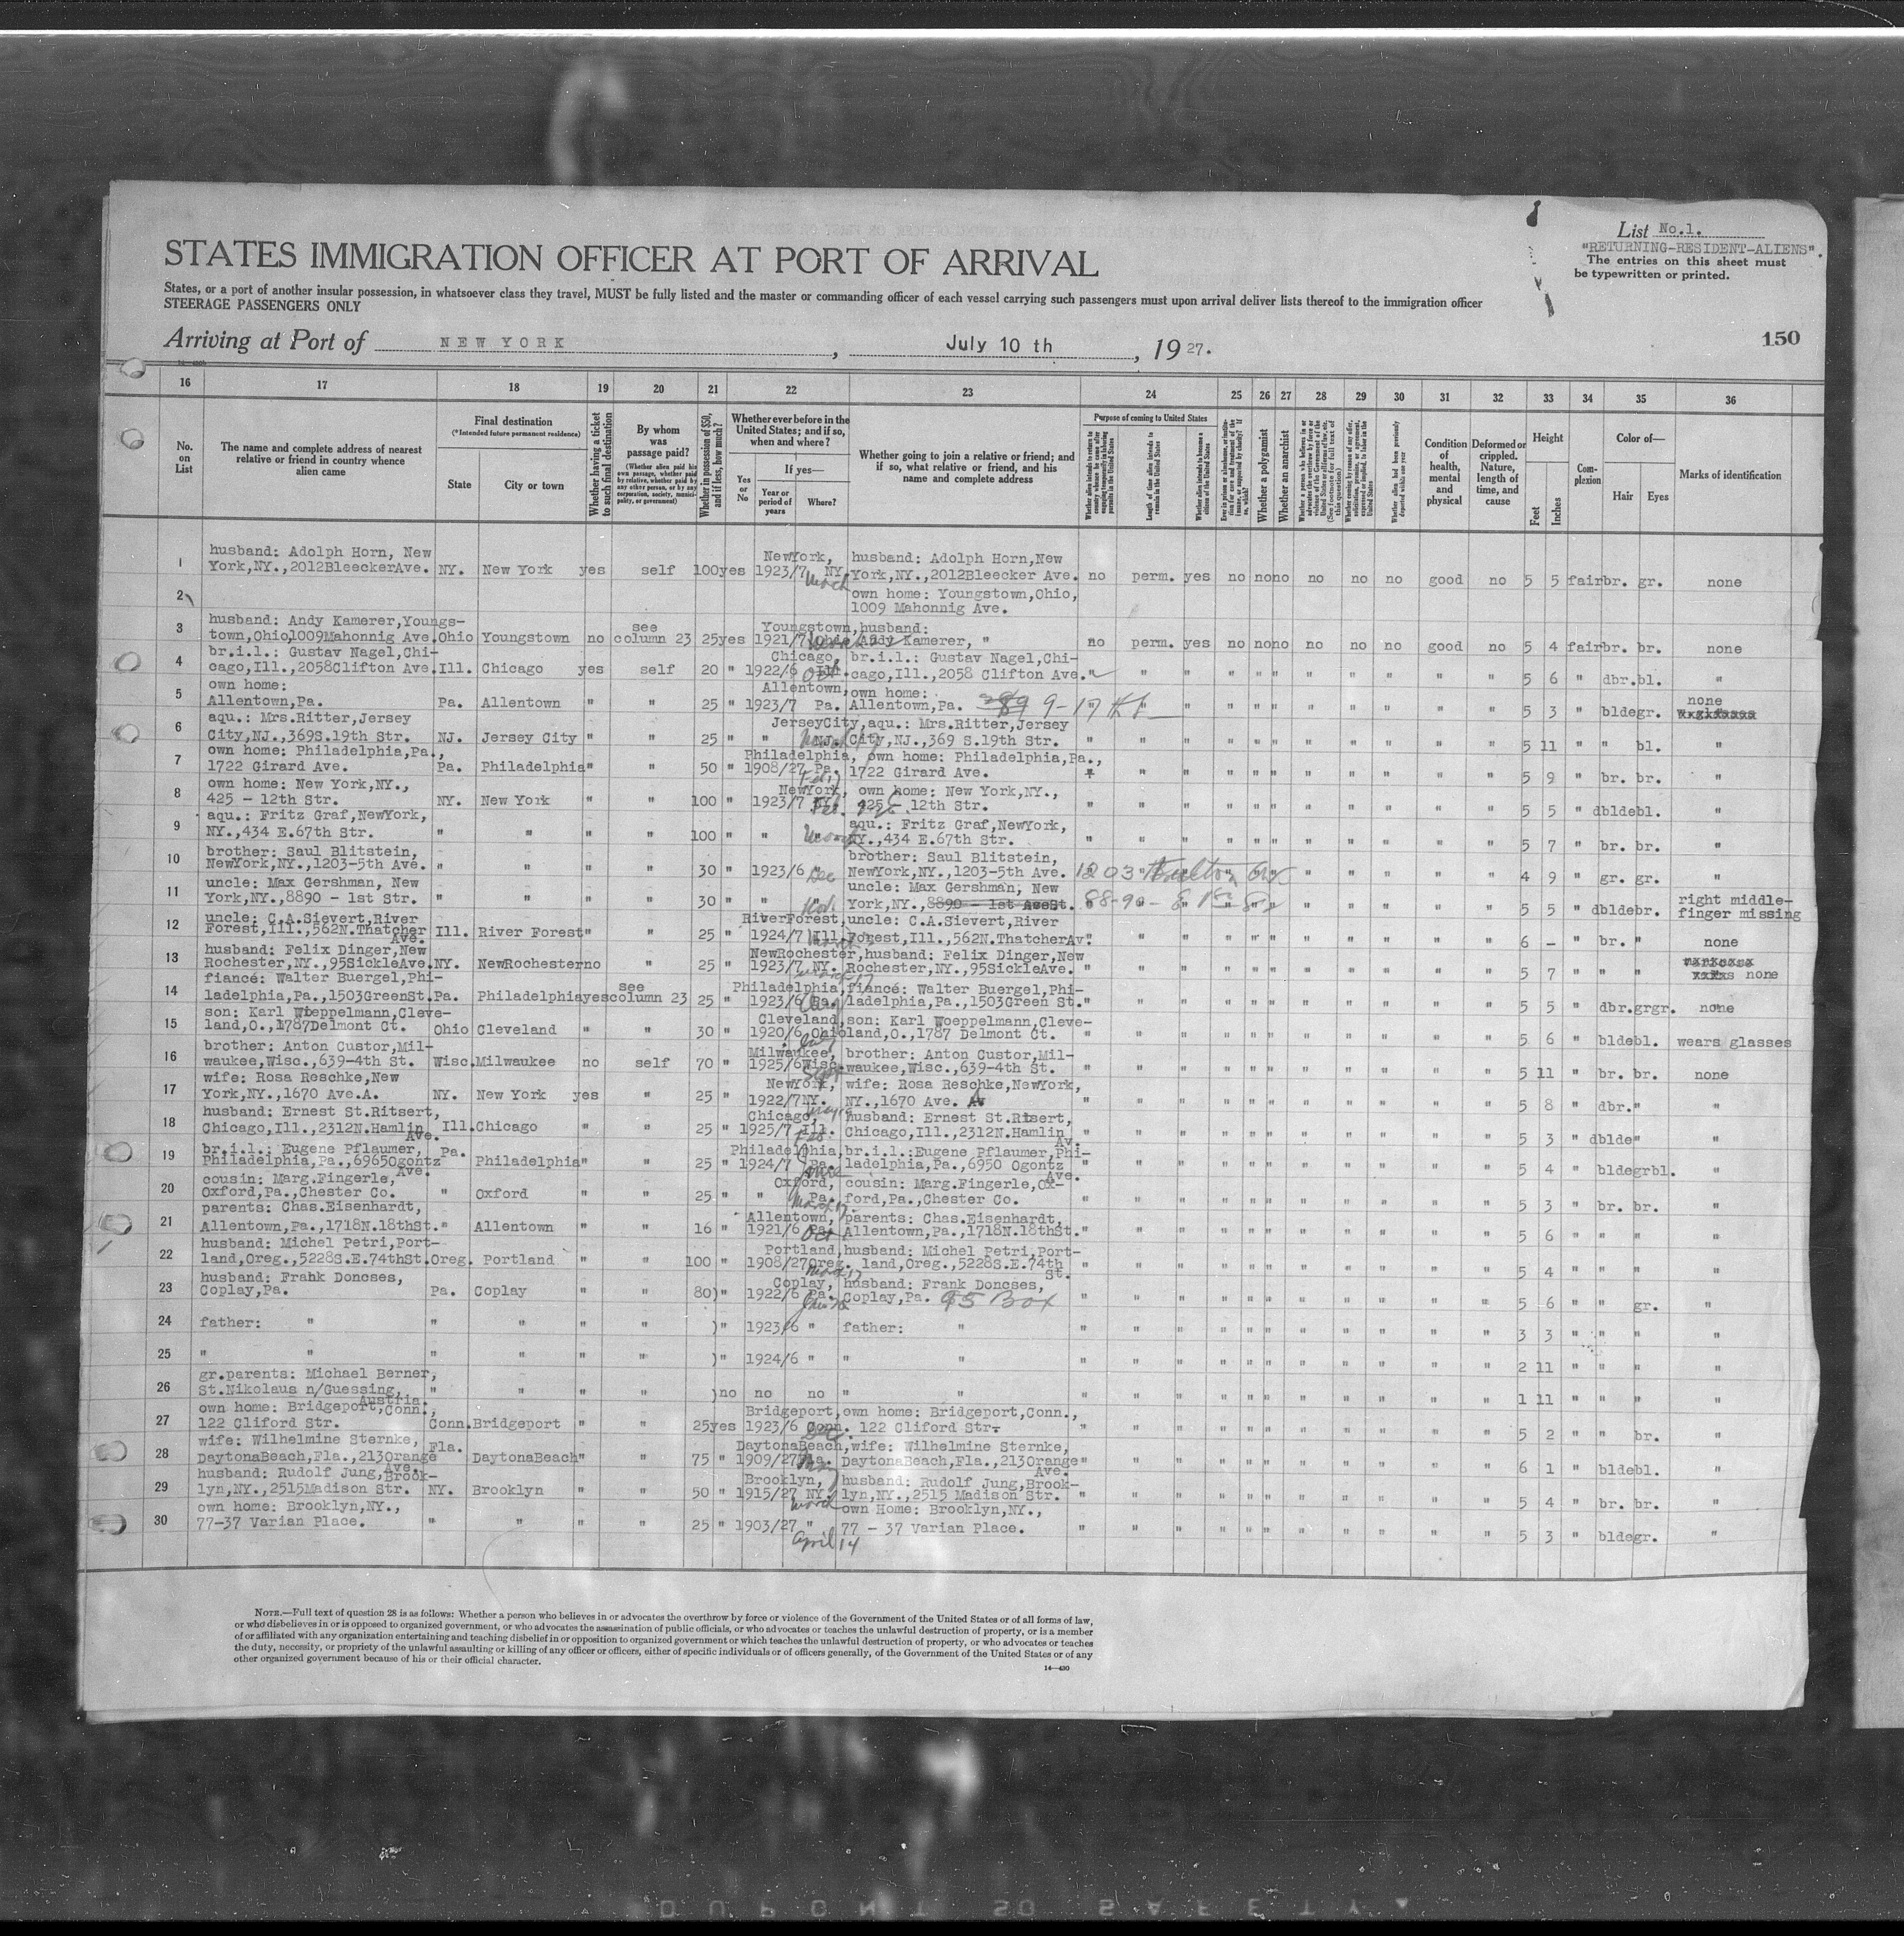 List No.1.
"RETURNING-RESIDENT-ALIENS".
The entries on this sheet must
be typewritten or printed.
STATES IMMIGRATION OFFICER AT PORT OF ARRIVAL
States, or a port of another insular possession, in whatsoever class they travel, MUST be fully listed and the master or commanding officer of each vessel carrying such passengers must upon arrival deliver lists thereof to the immigration officer
STEERAGE PASSENGERS ONLY
Arriving at Port of NEW YORK, July 10 th, 1927.
150
16 17 18 19 20 21 22 23 24 25 26 27 28 29 30 31 32 33 34 35 36
No. on List
The name and complete address of nearest relative or friend in country whence alien came
Final destination
(*Intended future permanent residence)
State
City or town
Whether having a ticket to such final destination
By whom was passage paid?
(Whether alien paid his own passage, whether paid by relative, whether paid by any other person, or by any corporation, society, municipality, or government)
Whether in possession of $50, and if less, how much?
Whether ever before in the United States; and if so, when and where?
Yes or No
If yes—
Year or period of years
Where?
Whether going to join a relative or friend; and if so, what relative or friend, and his name and complete address
Purpose of coming to United States
Length of time alien intends to remain in the United States
Whether alien intends to become a citizen of the United States
Whether a polygamist
Whether an anarchist
Condition of health, mental and physical
Deformed or crippled. Nature, length of time, and cause
Height
Feet
Inches
Complexion
Color of—
Hair
Eyes
Marks of identification
1 husband: Adolph Horn, New York,NY.,2012BleeckerAve. NY. New York yes self 100 yes 1923/7 NewYork, NY. husband: Adolph Horn,New York,NY.,2012Bleecker Ave. no perm. yes no no no no no no good no 5 5 fair br. gr. none
2 own home: Youngstown,Ohio, 1009 Mahonnig Ave.
3 husband: Andy Kamerer,Youngstown,Ohio,1009Mahonnig Ave. Ohio Youngstown no see column 23 25 yes 1921/7 Youngstown, husband: Andy Kamerer, " no perm. yes no no no no no no good no 5 4 fair br. br. none
4 br.i.l.: Gustav Nagel,Chicago,Ill.,2058Clifton Ave. Ill. Chicago yes self 20 " 1922/6 Chicago, Ill. br.i.l.: Gustav Nagel,Chicago,Ill.,2058 Clifton Ave. " " " " " " " " " " " 5 6 " dbr. bl. "
5 own home: Allentown,Pa. Pa. Allentown " " 25 " 1923/7 Allentown, Pa. own home: Allentown,Pa. " " " " " " " " " " 5 3 " blde gr. none
6 aqu.: Mrs.Ritter,Jersey City,NJ.,369S.19th Str. NJ. Jersey City " " 25 " " JerseyCity, NJ. aqu.: Mrs.Ritter,Jersey City,NJ.,369 S.19th Str. " " " " " " " " " " " 5 11 " " bl. "
7 own home: Philadelphia,Pa., 1722 Girard Ave. Pa. Philadelphia " " 50 " 1908/27 Philadelphia, Pa. own home: Philadelphia,Pa., 1722 Girard Ave. " " " " " " " " " " 5 9 " br. br. "
8 own home: New York,NY., 425 - 12th Str. NY. New York " " 100 " 1923/7 NewYork, NY. own home: New York,NY., 425 - 12th Str. " " " " " " " " " " " 5 5 " dblde bl. "
9 aqu.: Fritz Graf,NewYork, NY.,434 E.67th Str. " " " " 100 " " " aqu.: Fritz Graf,NewYork, NY.,434 E.67th Str. " " " " " " " " " " " 5 7 " br. br. "
10 brother: Saul Blitstein, NewYork,NY.,1203-5th Ave. " " " " 30 " 1923/6 Dec brother: Saul Blitstein, NewYork,NY.,1203-5th Ave. 1203 Fulton Av " " " " " " " " 4 9 " gr. gr. "
11 uncle: Max Gershman, New York,NY.,8890 - 1st Str. " " " " 30 " " " uncle: Max Gershman, New York,NY.,8890 - 1st AveSt. 88-90- " " " " " " " " 5 5 " dblde br. right middle-finger missing
12 uncle: C.A.Sievert,River Forest,Ill.,562N.Thatcher Ave. Ill. River Forest " " 25 " 1924/7 RiverForest, Ill. uncle: C.A.Sievert,River Forest,Ill.,562N.ThatcherAv. " " " " " " " " " " " 6 - " br. " none
13 husband: Felix Dinger,New Rochester,NY.,95SickleAve. NY. NewRochester no " 25 " 1923/7 NewRochester, NY. husband: Felix Dinger,New Rochester,NY.,95SickleAve. " " " " " " " " " " " 5 7 " " " none
14 fiancé: Walter Buergel,Philadelphia,Pa.,1503GreenSt. Pa. Philadelphia yes see column 23 25 " 1923/6 Philadelphia, Pa. fiancé: Walter Buergel,Philadelphia,Pa.,1503Green St. " " " " " " " " " " " 5 5 " dbr. grgr. none
15 son: Karl Woeppelmann,Cleveland,O.,1787Delmont Ct. Ohio Cleveland " " 30 " 1920/6 Cleveland, Ohio son: Karl Woeppelmann,Cleveland,O.,1787 Delmont Ct. " " " " " " " " " " " 5 6 " blde bl. wears glasses
16 brother: Anton Custor,Milwaukee,Wisc.,639-4th St. Wisc. Milwaukee no self 70 " 1925/6 Milwaukee, Wisc. brother: Anton Custor,Milwaukee,Wisc.,639-4th St. " " " " " " " " " " " 5 11 " br. br. none
17 wife: Rosa Reschke,New York,NY.,1670 Ave.A. NY. New York yes " 25 " 1922/7 NewYork, NY. wife: Rosa Reschke,NewYork, NY.,1670 Ave. A " " " " " " " " " " " 5 8 " dbr. " "
18 husband: Ernest St.Ritsert, Chicago,Ill.,2312N.Hamlin Ave. Ill. Chicago " " 25 " 1925/7 Chicago, Ill. husband: Ernest St.Ritsert, Chicago,Ill.,2312N.Hamlin Av. " " " " " " " " " " " 5 3 " dblde " "
19 br.i.l.: Eugene Pflaumer, Philadelphia,Pa.,6965Ogontz Ave. Pa. Philadelphia " " 25 " 1924/7 Philadelphia, Pa. br.i.l.:Eugene Pflaumer,Philadelphia,Pa.,6950 Ogontz Ave. " " " " " " " " " " " 5 4 " blde grbl. "
20 cousin: Marg.Fingerle, Oxford,Pa.,Chester Co. " Oxford " " 25 " " Oxford, Pa. March 17 cousin: Marg.Fingerle,Oxford,Pa.,Chester Co. " " " " " " " " " " " 5 3 " br. br. "
21 parents: Chas.Eisenhardt, Allentown,Pa.,1718N.18thSt. " Allentown " " 16 " 1921/6 Allentown, Pa. Oct parents: Chas.Eisenhardt, Allentown,Pa.,1718N.18thSt. " " " " " " " " " " " 5 6 " " " "
22 husband: Michel Petri,Portland,Oreg.,5228S.E.74thSt. Oreg. Portland " " 100 " 1908/27 Portland, Oreg. husband: Michel Petri,Portland,Oreg.,5228S.E.74th St. " " " " " " " " " " " 5 4 " " " "
23 husband: Frank Doncses, Coplay,Pa. Pa. Coplay " " 80) " 1922/6 Coplay, Pa. husband: Frank Doncses, Coplay,Pa. 95 Box " " " " " " " " " " " 5 6 " " gr. "
24 father: " " " " " ) " 1923/6 " father: " " " " " " " " " " " " 3 3 " " " "
25 " " " " " " ) " 1924/6 " " " " " " " " " " " " " " 2 11 " " " "
26 gr.parents: Michael Berner, St.Nikolaus n/Guessing, Austria. " " " " ) no no no " " " " " " " " " " " " " 1 11 " " " "
27 own home: Bridgeport,Conn., 122 Cliford Str. Conn. Bridgeport " " 25 yes 1923/6 Bridgeport, Conn. own home: Bridgeport,Conn., 122 Cliford Str. " " " " " " " " " " " 5 2 " " br. "
28 wife: Wilhelmine Sternke, DaytonaBeach,Fla.,213Orange Ave. Fla. DaytonaBeach " " 75 " 1909/27 DaytonaBeach, Fla. wife: Wilhelmine Sternke, DaytonaBeach,Fla.,213Orange Ave. " " " " " " " " " " " 6 1 " blde bl. "
29 husband: Rudolf Jung,Brooklyn,NY.,2515Madison Str. NY. Brooklyn " " 50 " 1915/27 Brooklyn, NY. March husband: Rudolf Jung,Brooklyn,NY.,2515 Madison Str. " " " " " " " " " " " 5 4 " br. br. "
30 own home: Brooklyn,NY., 77-37 Varian Place. " " " " 25 " 1903/27 " April 14 own Home: Brooklyn,NY., 77 - 37 Varian Place. " " " " " " " " " " " 5 3 " blde gr. "
NOTE.—Full text of question 28 is as follows: Whether a person who believes in or advocates the overthrow by force or violence of the Government of the United States or of all forms of law,
or who disbelieves in or is opposed to organized government, or who advocates the assassination of public officials, or who advocates or teaches the unlawful destruction of property, or is a member
of or affiliated with any organization entertaining and teaching disbelief in or opposition to organized government or which teaches the unlawful destruction of property, or who advocates or teaches
the duty, necessity, or propriety of the unlawful assaulting or killing of any officer or officers, either of specific individuals or of officers generally, of the Government of the United States or of any
other organized government because of his or their official character.
14—430
DUPONT SO SAFETY